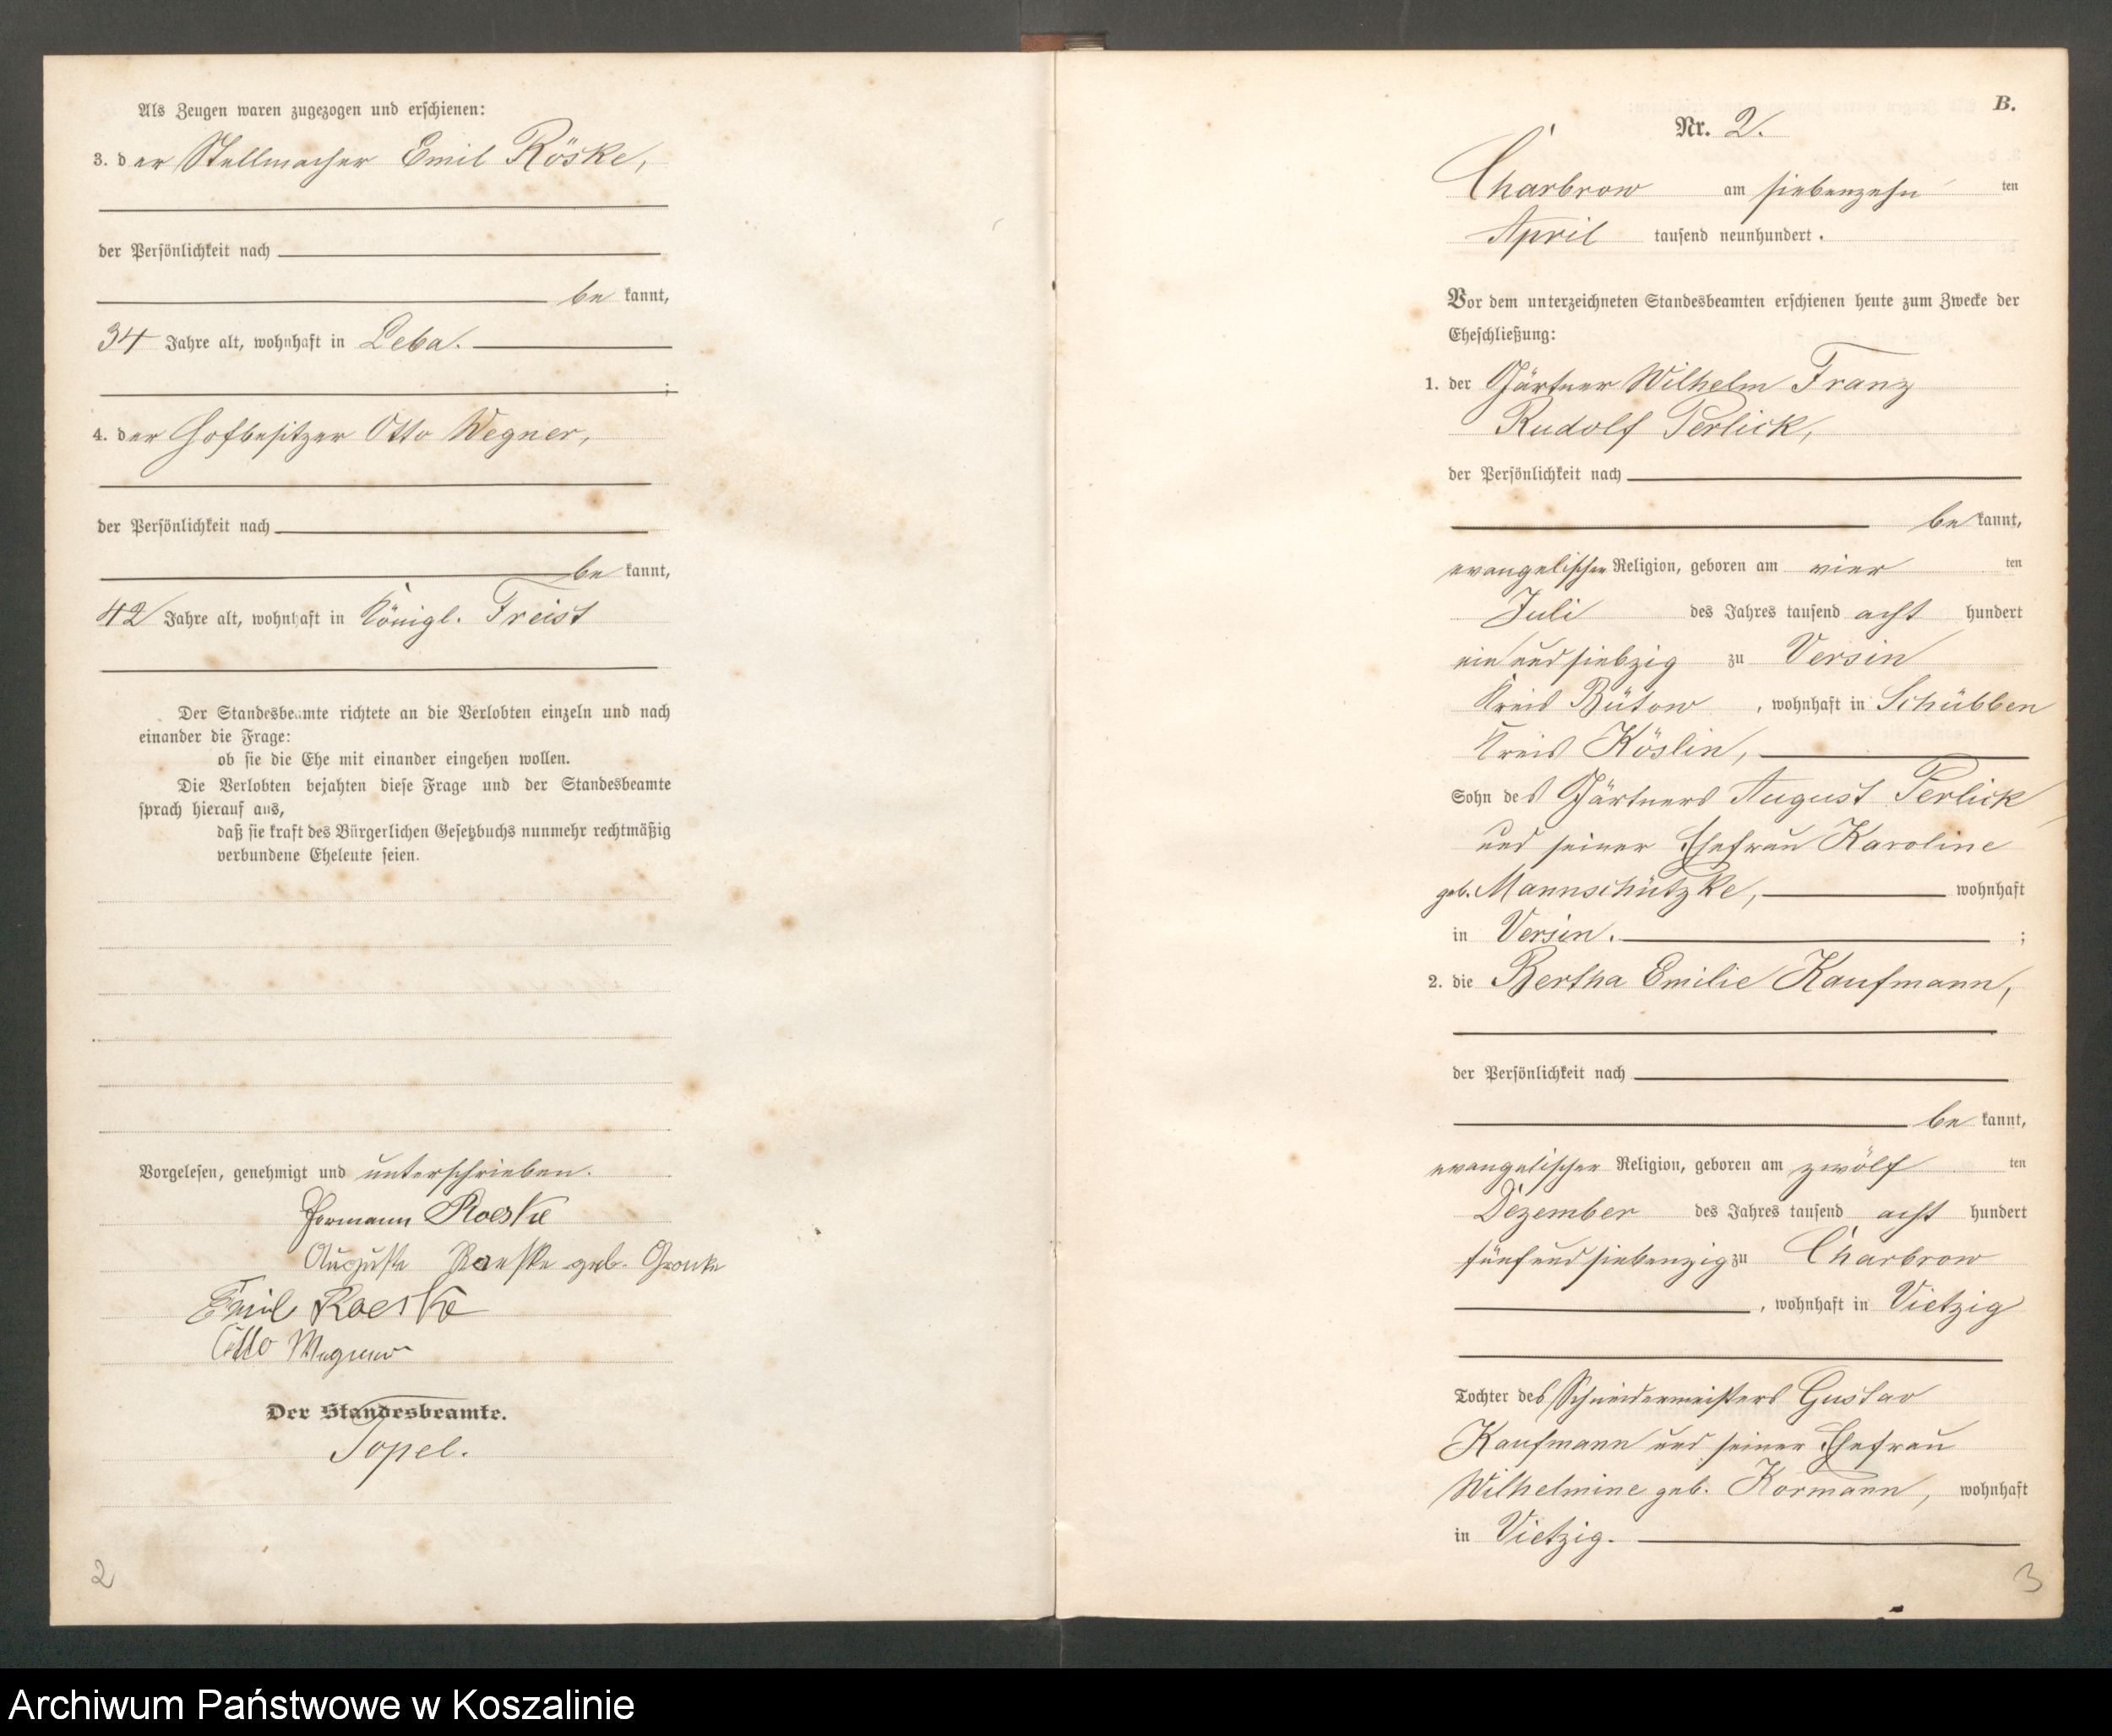 Als Zeugen waren zugezogen und erschienen:
3. der Stellmacher Emil Röske,
der Persönlichkeit nach
be kannt,
34 Jahre alt, wohnhaft in Leba.
;
4. der Hofbesitzer Otto Wegner,
der Persönlichkeit nach
be kannt,
42 Jahre alt, wohnhaft in Königl. Freist
Der Standesbeamte richtete an die Verlobten einzeln und nach
einander die Frage:
ob sie die Ehe mit einander eingehen wollen.
Die Verlobten bejahten diese Frage und der Standesbeamte
sprach hierauf aus,
daß sie kraft des Bürgerlichen Gesetzbuchs nunmehr rechtmäßig
verbundene Eheleute seien.
Vorgelesen, genehmigt und unterschrieben.
Hermann Roeske
Auguste Roeske geb.
Emil Roeske
Otto Wegner
Der Standesbeamte.
Topel.
2
B.
Nr. 2.
Charbrow am siebenzehn ten
April tausend neunhundert.
Vor dem unterzeichneten Standesbeamten erschienen heute zum Zwecke der
Eheschließung:
1. der Gärtner Wilhelm Franz
Rudolf Perlick,
der Persönlichkeit nach
be kannt,
evangelischer Religion, geboren am vier ten
Juli des Jahres tausend acht hundert
ein und siebzig zu Versin
Kreis Bütow, wohnhaft in Schübben
Kreis Köslin,
Sohn des Gärtners August Perlick
und seiner Ehefrau Karoline
geb. Mannschützke, wohnhaft
in Versin. ;
2. die Bertha Emilie Kaufmann,
der Persönlichkeit nach
be kannt,
evangelischer Religion, geboren am zwölf ten
Dezember des Jahres tausend acht hundert
fünf und siebenzig zu Charbrow
, wohnhaft in Vietzig
Tochter des Schneidermeisters Gustav
Kaufmann und seiner Ehefrau
Wilhelmine geb. Kormann, wohnhaft
in Vietzig.
3
Archiwum Państwowe w Koszalinie